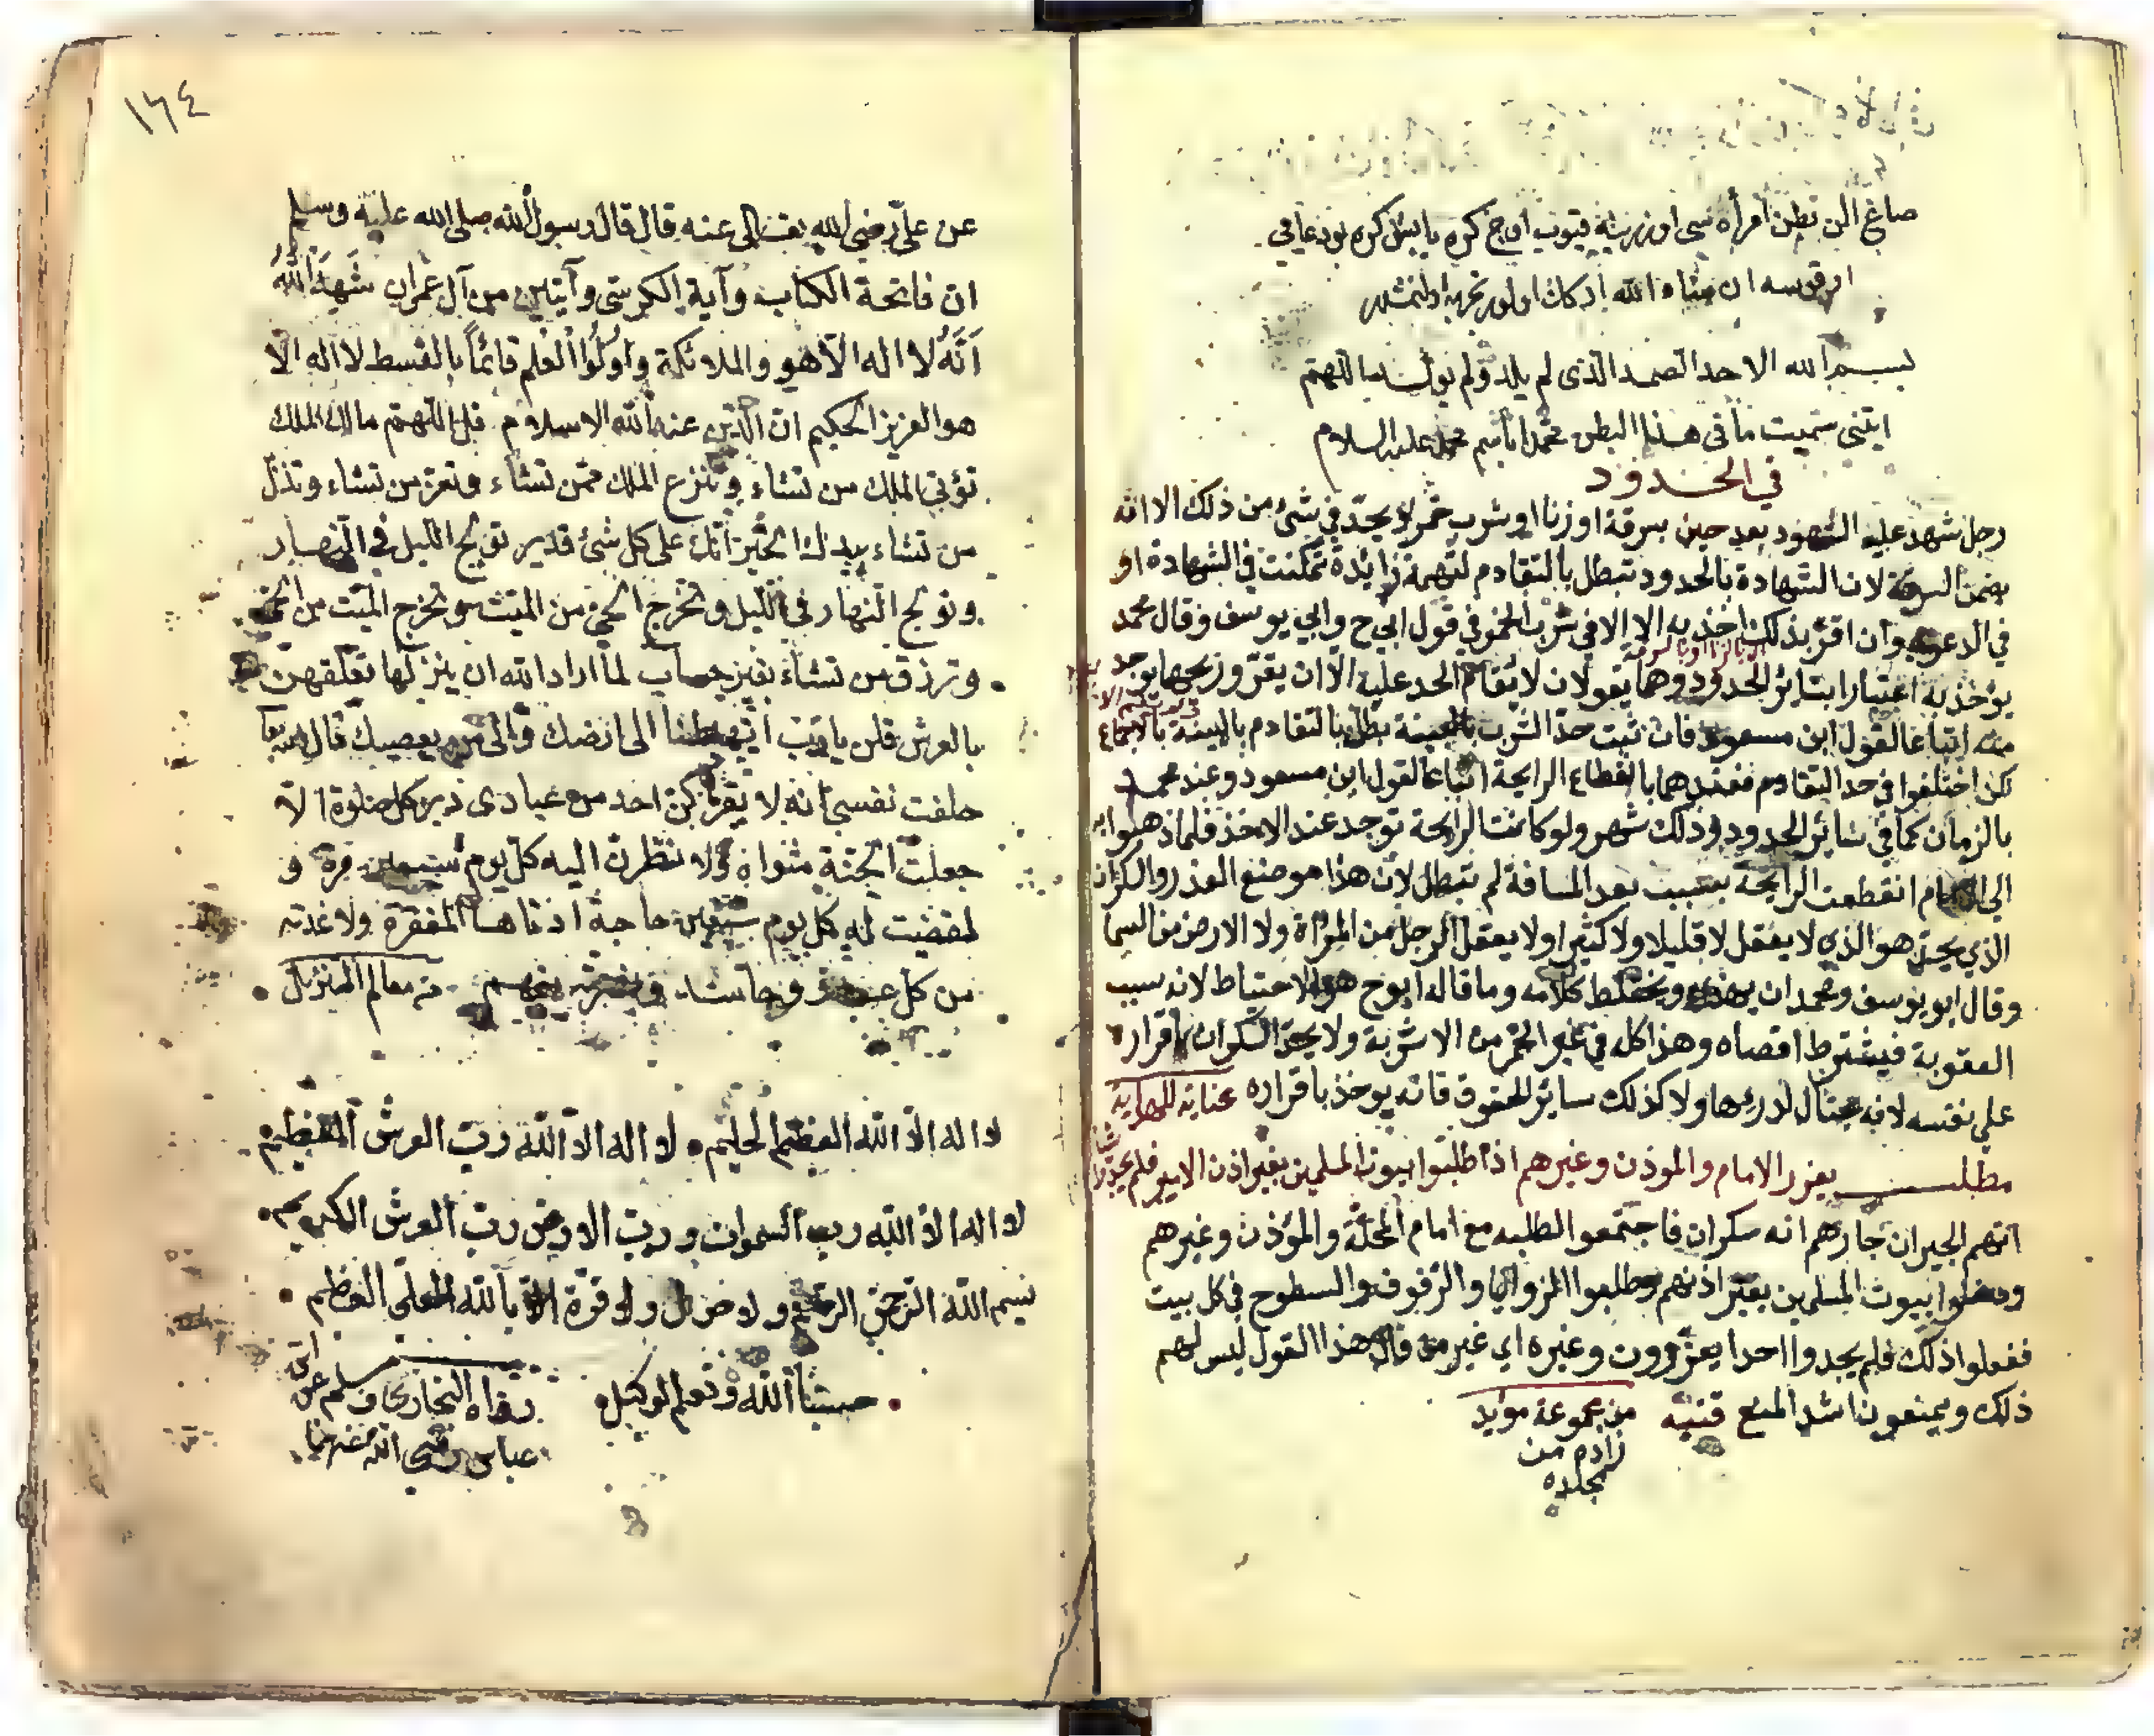 صاغ الن بطن امرأة سى اوزرينه قيوب اوج كره يا بش كره بو دعايى
اوقوسه ان شاء الله اركك اولور تجربه اولنمشدر
بسم الله الاحد الصمد الذى لم يلد ولم يولد اللهم
اننى سميت ما فى هذا البطن محمدا باسم محمد عليه السلام
في الحدود
رجل شهد عليه الشهود بعد حين بسرقة او زنا او شرب خمر لا يحد في شئ من ذلك الا انه
يضمن السرقة لان الشهادة بالحدود تبطل بالتقادم لتهمة زائدة تمكنت في الشهادة او
في الدعوى وان اقر بذلك اخذ به الا في شرب الخمر في قول ابي ح وابي يوسف وقال محمد
اي بالزنا او بالسرقة
يؤخذ به اعتبارا بسائر الحدود وهما يقولان لا يقام الحد عليه الا ان يقر وريحها يوجد
منه اتباعا لقول ابن مسعود فان ثبت حد الشرب بالبينة بطل بالتقادم بالبينة بالاجماع
لكن اختلفوا في حد التقادم فعندهما بانقطاع الرايحة اتباعا لقول ابن مسعود وعند محمد
بالزمان كما في سائر الحدود وذلك شهر ولو كانت الرايحة توجد عند الاخذ فلما ذهبوا به
الى الامام انقطعت الرايحة بسبب بعد المسافة لم تبطل لان هذا موضع العذر والسكران
الذي يحد هو الذي لا يعقل لا قليلا ولا كثيرا ولا يعقل الرجل من المرأة ولا الارض من السما
وقال ابو يوسف ومحمد ان يهذي ويختلط كلامه وما قاله ابو ح هو الاحتياط لانه سبب
العقوبة فيشترط اقصاه وهذا كله في غير الخمر من الاشربة ولا يحد السكران باقراره
على نفسه لانه يحتال لدرئها ولا كذلك ساير الحقوق فانه يوخذ باقراره عنايه للهدايه
مطلب يعزر الامام والموذن وغيرهم اذا طلبوا بيوت المسلمين بغير اذن الامير فلم يجدوا شأ
اتهم الجيران جارهم انه سكران فاجتمعوا لطلبه مع امام المحلة والمؤذن وغيرهم
ودخلوا بيوت المسلمين بغير اذنهم وطلبوا الزوايا والرفوف والسطوح في كل بيت
ففعلوا ذلك فلم يجدوا احدا يعزرون وغيره اي غير من قال هذا القول ليس لهم
ذلك ويمنعون اشد المنع قنيه من مجموعة مؤيد
زاده من
مجلده
١٦٤
عن على رضى الله تعالى عنه قال قال رسول الله صلى الله عليه وسلم
ان فاتحة الكتاب وآية الكرسى وآيتين من آل عمران شهد الله
انه لا اله الا هو والملائكة واولوا العلم قائما بالقسط لا اله الا
هو العزيز الحكيم ان الدين عند الله الاسلام قل اللهم مالك الملك
تؤتي الملك من تشاء وتنزع الملك ممن تشاء وتعز من تشاء وتذل
من تشاء بيدك الخير انك على كل شئ قدير تولج الليل في النهار
وتولج النهار في الليل وتخرج الحي من الميت وتخرج الميت من الحي
وترزق من تشاء بغير حساب لما اراد الله ان ينزلها تعلقهن
بالعرش قلن يا رب اتهبطنا الى ارضك والى من يعصيك قال الله تعا
حلفت بنفسي انه لا يقرأكن احد من عبادى دبر كل صلوة الا
جعلت الجنة مثواه ولا نظرت اليه كل يوم سبعين مرة و
لقضيت له كل يوم سبعين حاجة ادناها المغفرة ولاعذته
من كل عدو وحاسد ونصرته منهم من معالم التنزيل
لا اله الا الله العظيم الحليم لا اله الا الله رب العرش العظيم
لا اله الا الله رب السموات ورب الارض رب العرش الكريم
بسم الله الرحمن الرحيم ولا حول ولا قوة الا بالله العلي العظيم
حسبنا الله ونعم الوكيل رواه البخارى ومسلم عن ابن
عباس رضى الله عنهما